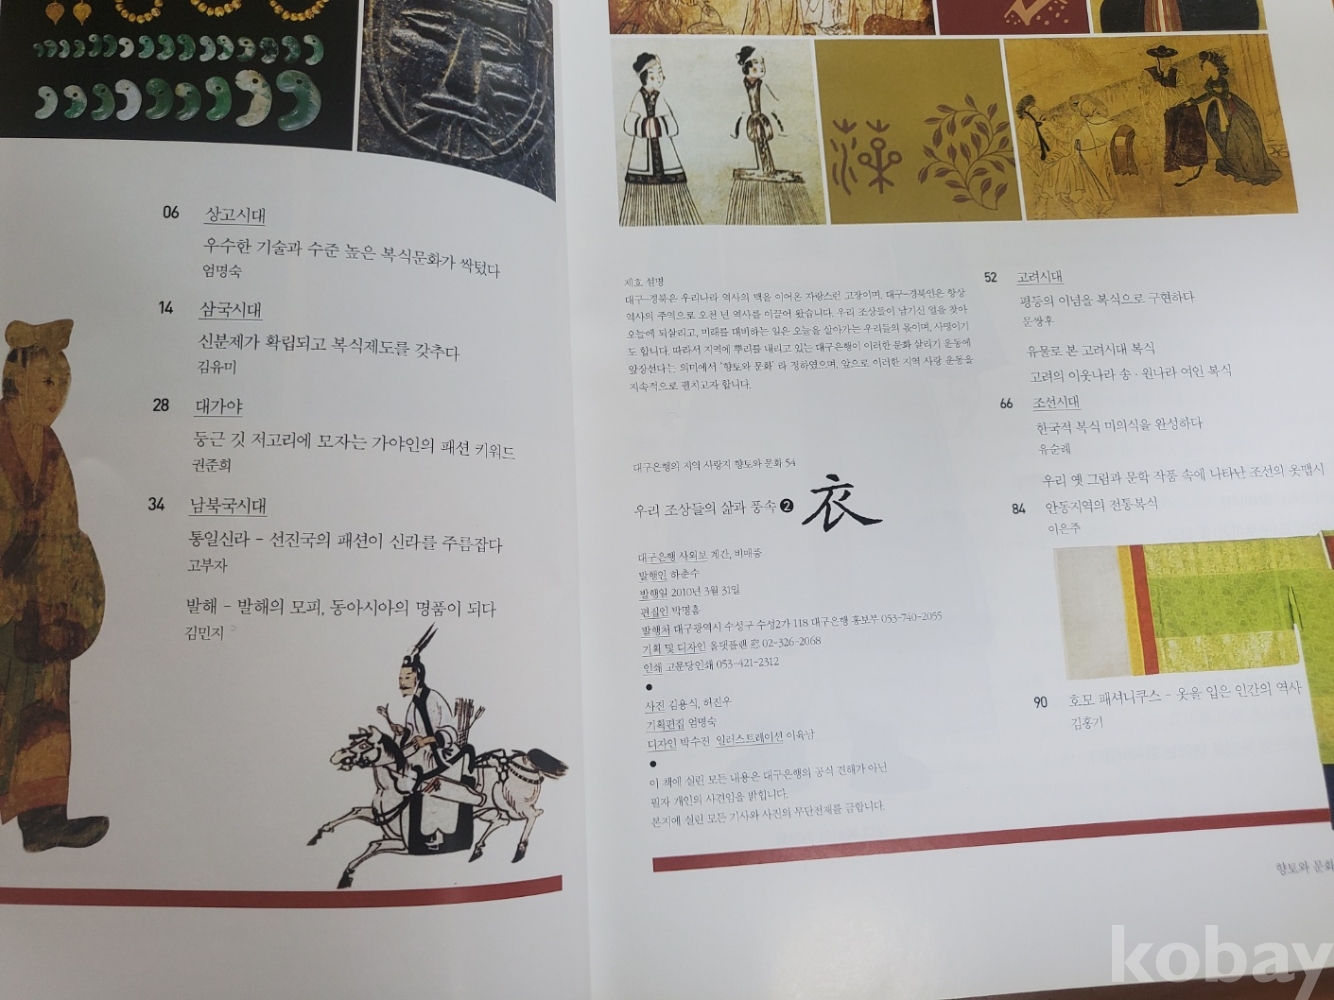 06 상고시대
우수한 기술과 수준 높은 복식문화가 싹텄다
엄명숙
14 삼국시대
신분제가 확립되고 복식제도를 갖추다
김유미
28 대가야
둥근 깃 저고리에 모자는 가야인의 패션 키워드
권준희
34 남북국시대
통일신라 - 선진국의 패션이 신라를 주름잡다
고부자
발해 - 발해의 모피, 동아시아의 명품이 되다
김민지
제호 설명
대구-경북은 우리나라 역사의 맥을 이어온 자랑스런 고장이며, 대구-경북인은 항상
역사의 주역으로 오천 년 역사를 이끌어 왔습니다. 우리 조상들이 남기신 얼을 찾아
오늘에 되살리고, 미래를 대비하는 일은 오늘을 살아가는 우리들의 몫이며, 사명이기
도 합니다. 따라서 지역에 뿌리를 내리고 있는 대구은행이 이러한 문화 살리기 운동에
앞장선다는 의미에서 '향토와 문화' 라 정하였으며, 앞으로 이러한 지역 사랑 운동을
지속적으로 펼치고자 합니다.
대구은행의 지역 사랑지 향토와 문화 54
우리 조상들의 삶과 풍속 ❷ 衣
대구은행 사외보 계간, 비매품
발행인 하춘수
발행일 2010년 3월 31일
편집인 박명흠
발행처 대구광역시 수성구 수성2가 118 대구은행 홍보부 053-740-2055
기획 및 디자인 올댓플랜 02-326-2068
인쇄 고문당인쇄 053-421-2312
●
사진 김용식, 허진우
기획편집 엄명숙
디자인 박수진 일러스트레이션 이육남
●
이 책에 실린 모든 내용은 대구은행의 공식 견해가 아닌
필자 개인의 사견임을 밝힙니다.
본지에 실린 모든 기사와 사진의 무단전재를 금합니다.
52 고려시대
평등의 이념을 복식으로 구현하다
문광후
유물로 본 고려시대 복식
고려의 이웃나라 송 · 원나라 여인 복식
66 조선시대
한국적 복식 미의식을 완성하다
유순례
우리 옛 그림과 문학 작품 속에 나타난 조선의 옷맵시
84 안동지역의 전통복식
이은주
90 호모 패셔니쿠스 - 옷을 입은 인간의 역사
김홍기
향토와 문화
kobay